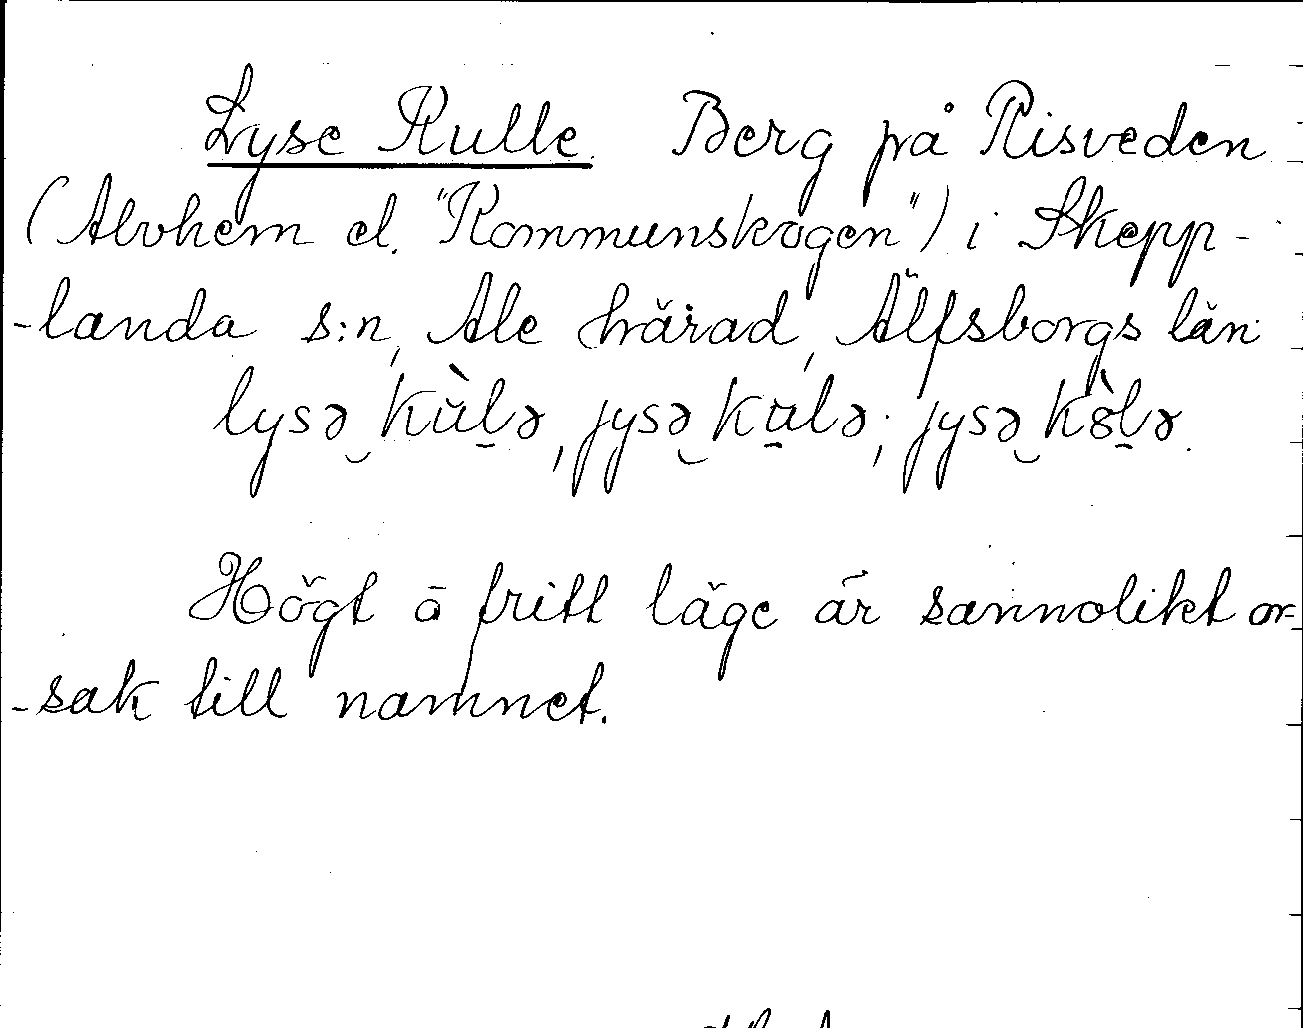 Lyse Kulle. Berg på Risveden
(Alvhem el. "Kommunskogen") i Skepp-
-landa s:n, Ale härad, Älfsborgs län.
lysə kùlə, jysə kulə; jysə kòlə.
Högt å fritt läge är sannolikt or-
-sak till namnet.